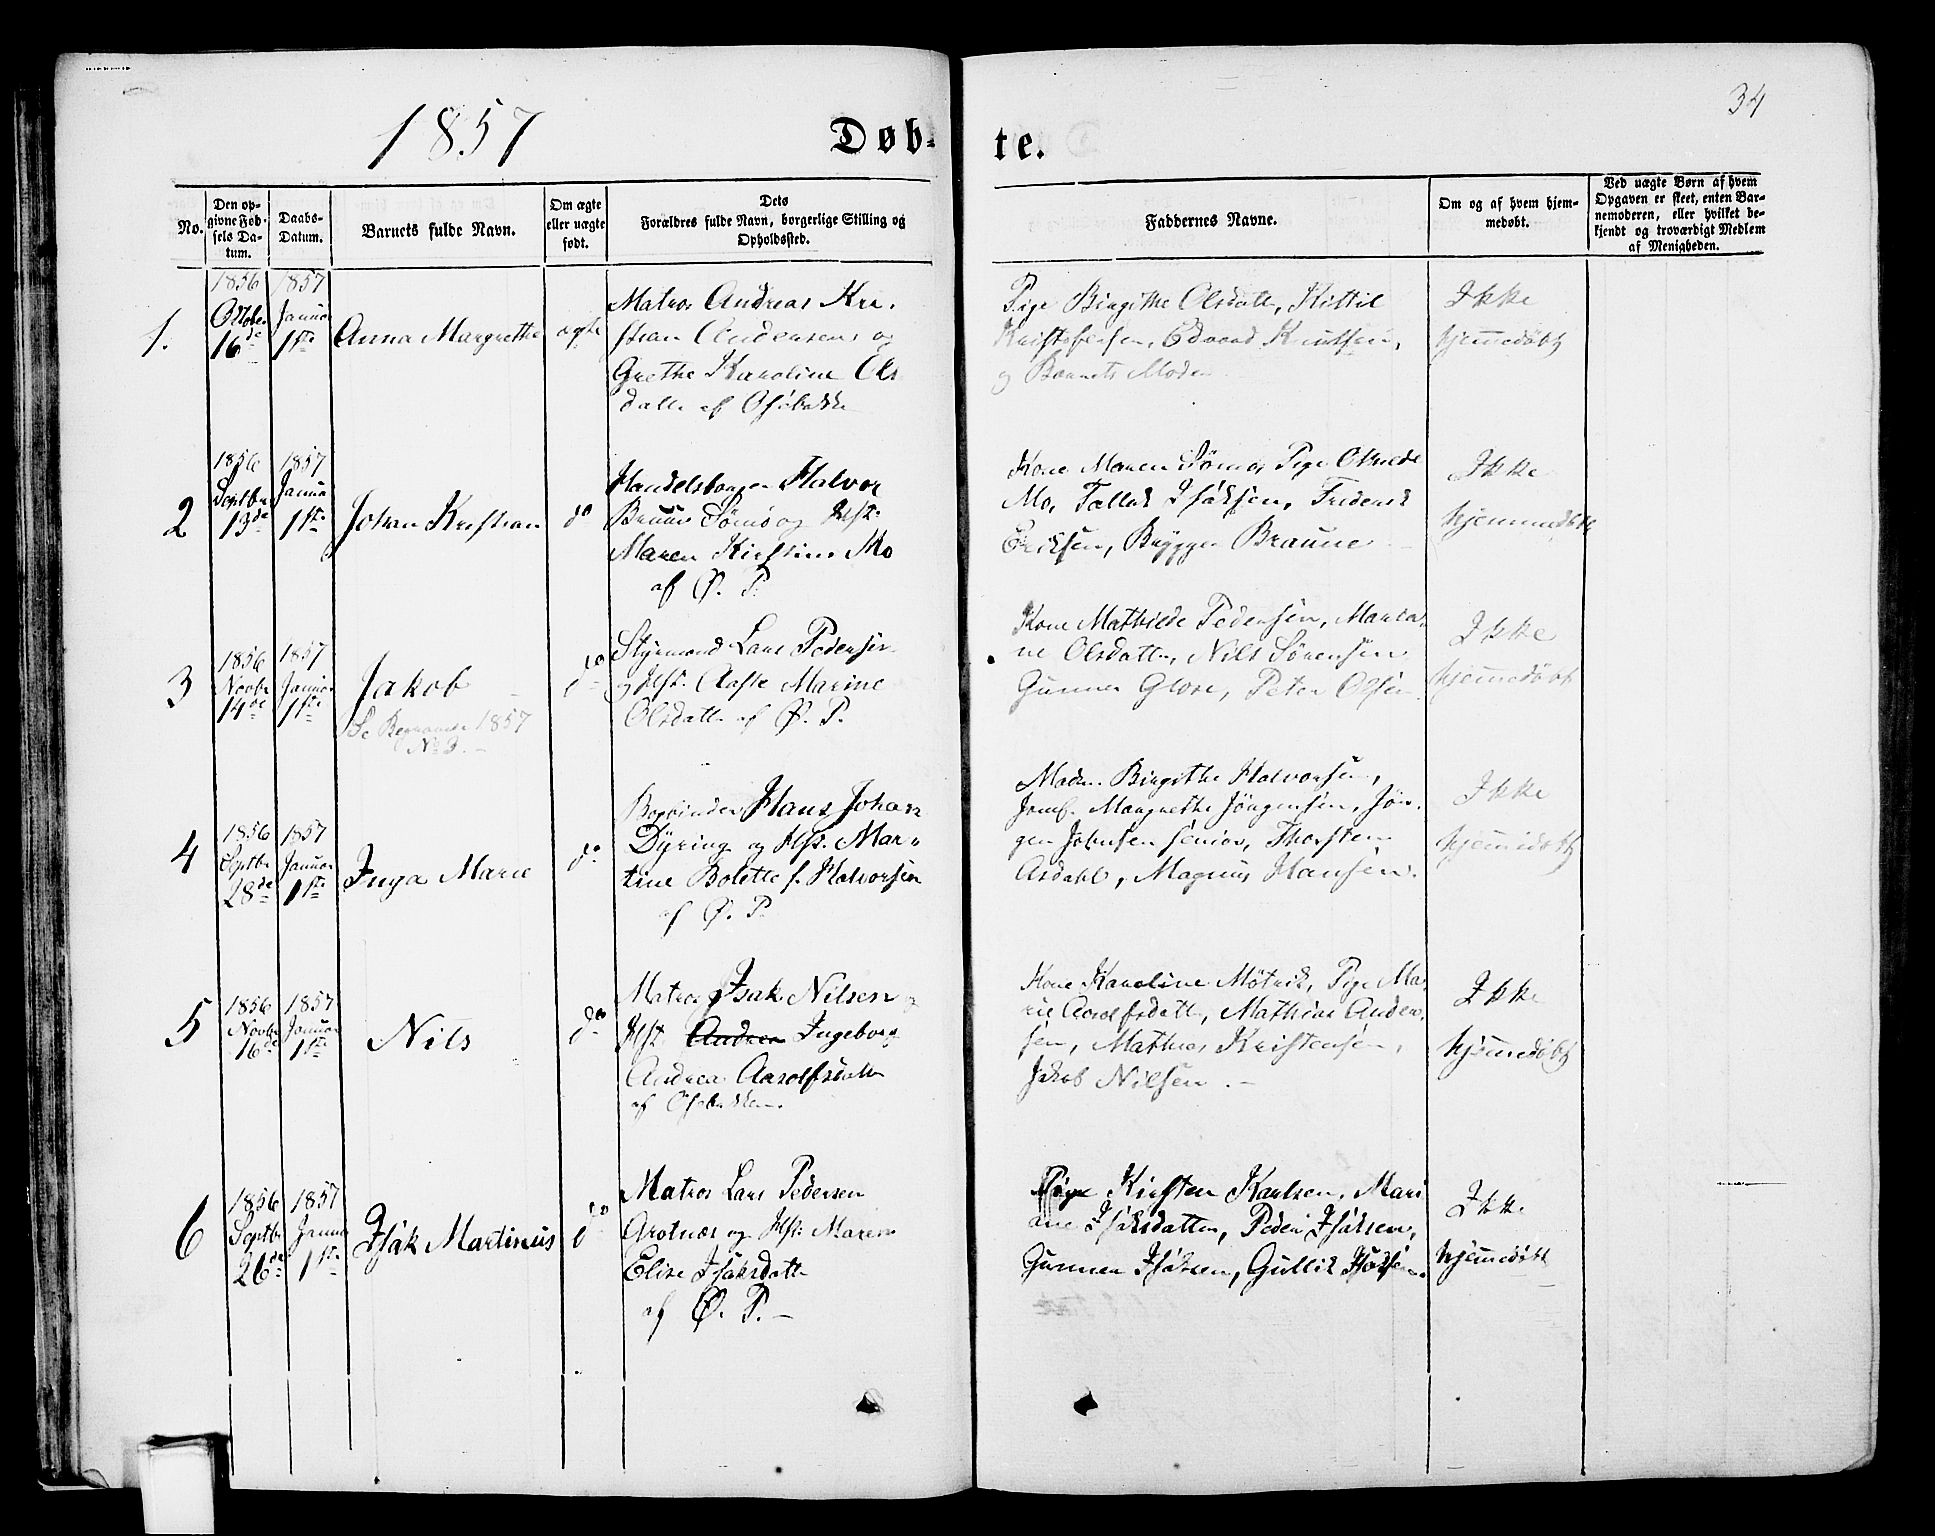 34
1857
Døb-
te.
No.
Den op-
givne Fød-
sels Da-
tum.
Daabs-
Datum.
Barnets fulde Navn.
Om ægte
eller uægte
født.
Dets
Forældres fulde Navn, borgerlige Stilling og
Opholdssted.
Faddernes Navne.
Om og af hvem hjem-
medøbt.
Ved uægte Børn af hvem
Opgaven er skeet, enten Bar-
nemoderen, eller hvilket be-
kjendt og troværdigt Medlem
af Menigheden.
1.
1856
Octobr
16de
1857
Januar
1ste
Anna Margrethe
ægte
Matros Andreas Kri-
stian Andersen og
Grethe Karoline Ols
datter af
Pige Birgithe Olsdatter, Kittil
Kristofersen, Edvard Knutsen,
og Barnets Moder
Ikke
hjemmedøbt
2
1856
Septbr
13de
1857
Januar
1ste
Johan Kristian
do
Handelsborger Halvor
Bruun Sømo og Hst:
Maren Kirstine Mo
af Ø. P.
Kone Maren Sømo, Pige
Mo, Tallak Isaksen, Frederik
Eriksen, Brygger Braune
Ikke
hjemmedøbt
3
1856
Novbr
14de
1857
Januar
1ste
Jakob
Se Begravede 1857
No 3.
do
Styrmand Lars Pedersen
og Hst: Aaste Marine
Olsdatter af Ø. P.
Kone Mathilde Pedersen,
ne Olsdatter, Nils Sørensen
Gunner Glose, Peter Olsen
Ikke
hjemmedøbt
4
1856
Septbr
28de
1857
Januar
1ste
Inga Marie
do
Bogbinder Hans Johan
Dyring og Hst: Mar-
tine Bolette f. Halvorsen
af Ø. P.
Madm. Birgithe Halvorsen,
Jomf. Margrethe Jörgensen, Jör-
gen Johnsen senior, Thorsten
Asdahl, Magnus Hansen.
Ikke
hjemmedøbt
5
1856
Novbr
16de
1857
Januar
1ste
Nils
do
Matros Isak Nilsen og
Hst. Andrea Ingeborg
Andrea Aarolfsdatter
af
Kone Karoline Møtvik, Pige Ma-
rie Aarolfsdatter, Mathias Ander-
sen, Mathias Kristensen,
Jakob Nilsen. -
Ikke
hjemmedøbt
6
1856
Septbr
26de
1857
Januar
1ste
Isak Martinius
do
Matros Lars Pedersen
Arotnæs og Hst: Maren
Elise Isaksdatter
af Ø. P. -
Pige Kirsten Karlsen, Mari
ane Isaksdatter, Peder Isaksen,
Gunner Isaksen, Gullik Isaksen.
Ikke
hjemmedøbt